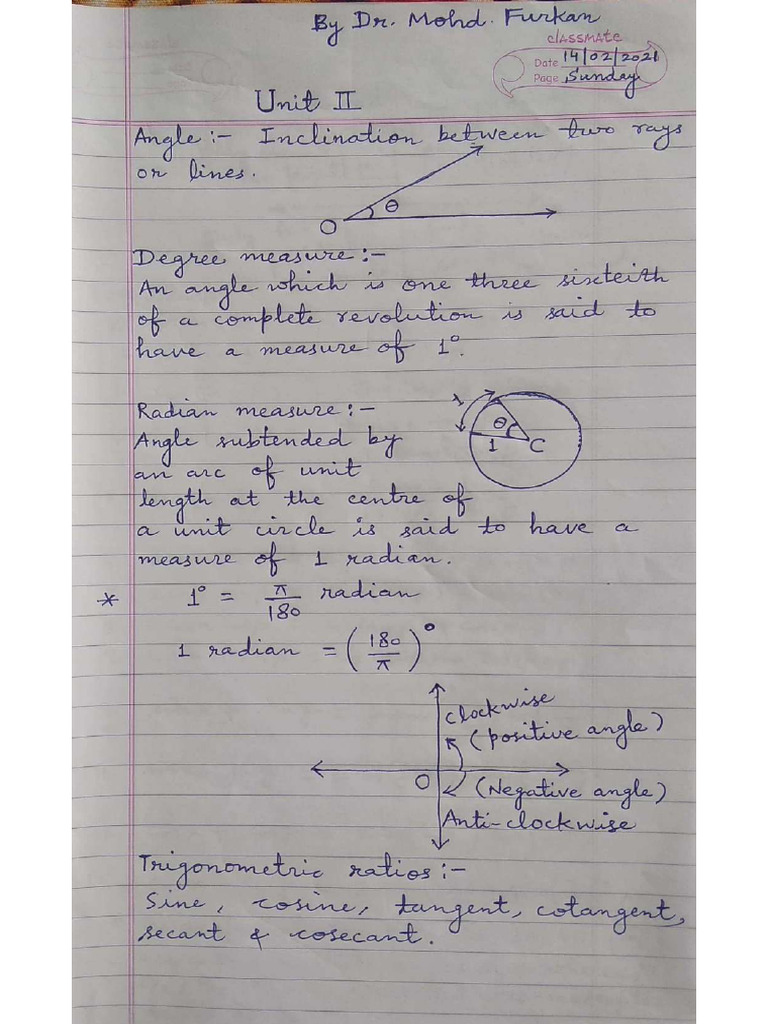 By Dr. Mohd. Furkan
classmate
Date 14/02/2021
Page Sunday
Unit II
Angle :- Inclination between two rays
or lines.
θ
O
Degree measure :-
An angle which is one three sixteith
of a complete revolution is said to
have a measure of 1°.
Radian measure :-
Angle subtended by
an arc of unit
length at the centre of
a unit circle is said to have a
measure of 1 radian.
1
θ
1 C
* 1° = π/180 radian
1 radian = (180/π)°
clockwise
(positive angle)
O
(Negative angle)
Anti-clockwise
Trigonometric ratios :-
Sine, cosine, tangent, cotangent,
secant & cosecant.